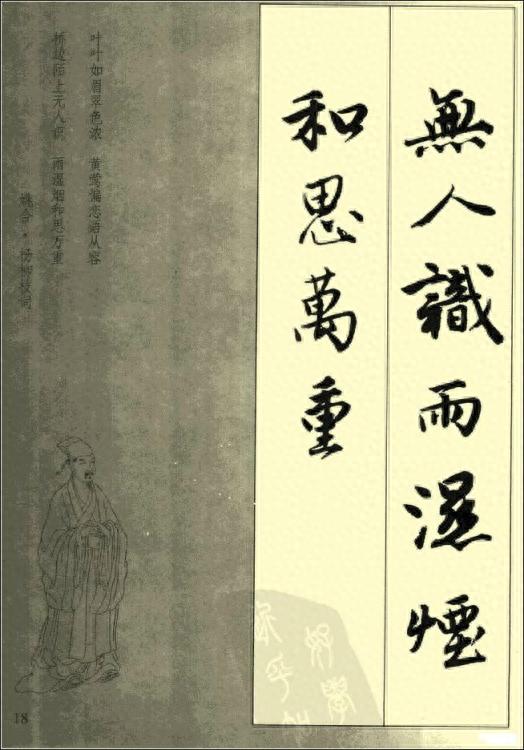 無人識雨濕煙
和思萬重
叶叶如眉翠色浓 黄莺偏恋语从容
桥边陌上无人识 雨湿烟和思万重
姚合·杨柳枝词
18